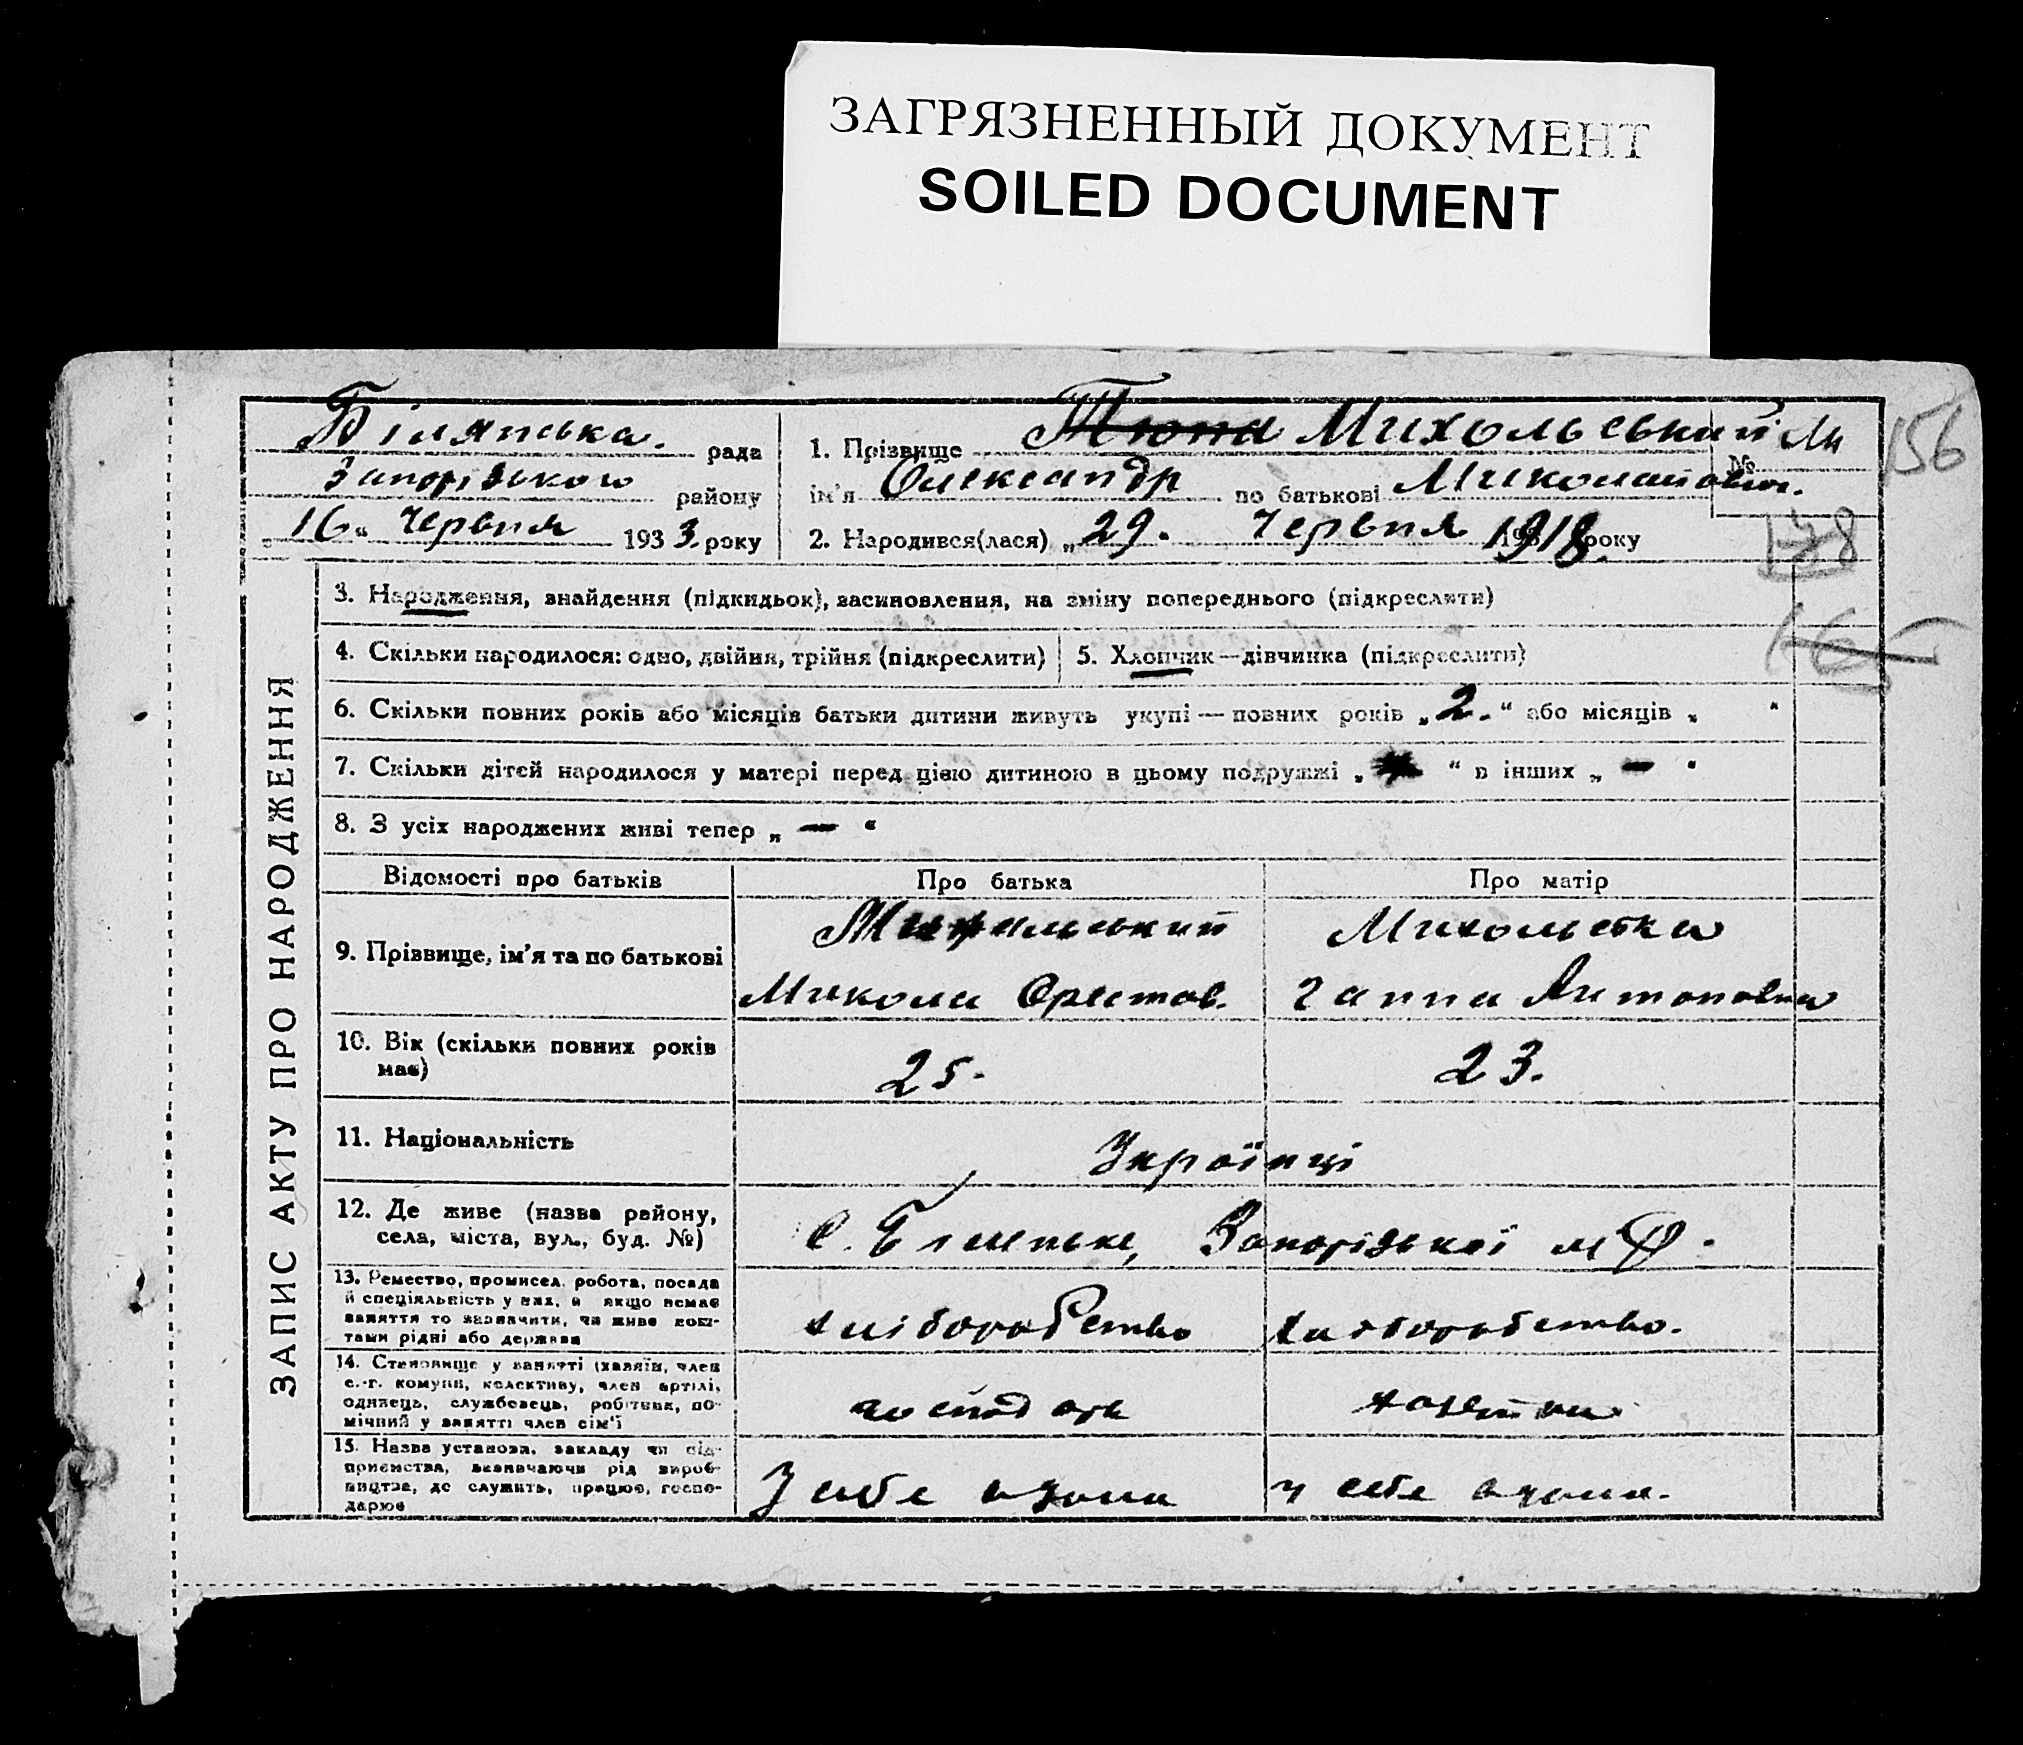 ЗАГРЯЗНЕННЫЙ ДОКУМЕНТ
SOILED DOCUMENT
Білянська. рада
Запорізького району
„16“ Червня 1933. року
1. Прізвище Тюпа Михольський
№
156
ім'я Олександр по батькові Миколайович.
2. Народився(лася) „29. Червня 1918 року
178
ЗАПИС АКТУ ПРО НАРОДЖЕННЯ
3. Народження, знайдення (підкидьок), засиновлення, на зміну попереднього (підкреслити)
4. Скільки народилося: одно, двійня, трійня (підкреслити)
5. Хлопчик—дівчинка (підкреслити)
6. Скільки повних років або місяців батьки дитини живуть укупі — повних років „2.“ або місяців „ “
7. Скільки дітей народилося у матері перед цією дитиною в цьому подружжі „ “ в інших „ — “
8. З усіх народжених живі тепер „ — “
Відомості про батьків
Про батька
Про матір
9. Прізвище, ім'я та по батькові
Михольський
Микола Орестов.
Михольська
Ганна Антоновна
10. Вік (скільки повних років має)
25.
23.
11. Національність
Українці
12. Де живе (назва району,
села, міста, вул., буд. №)
С. Біленьке, Запорізької
13. Ремество, промисел, робота, посада
й спеціяльність у них, а якщо немає
заняття то зазначити, чи живе кош-
тами рідні або держави
хліборобство
хліборобство.
14. Становище у занятті (хазяїн, член
с.-г. комуни, колективу, член артілі,
одинець, службовець, робітник, по-
мічний у занятті член сім'ї
господарь
хазяйка
15. Назва установи, закладу чи під-
приємства, зазначаючи рід вироб-
ництва, де служить, працює, госпо-
дарює
У себе вдома
у себе вдома.